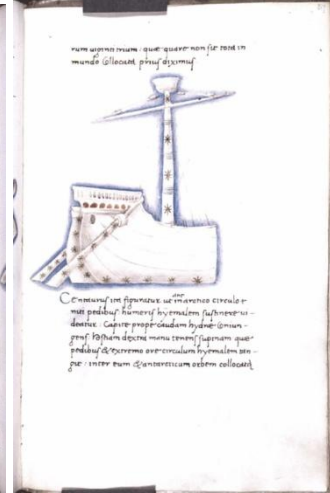 rum uigintitrium: quae quare non sit tota in
mundo collocata prius diximus
Centaurus ita figuratur ut in antarctico circulo e
niti pedibus humeris hyemalem sustinere ui-
deatur. Capite prope caudam hydrae coniun-
gens. hostiam dextra manu tenens supinam quae
pedibus & extremo ore circulum hyemalem tan-
git: inter eum & antarcticum orbem collocata